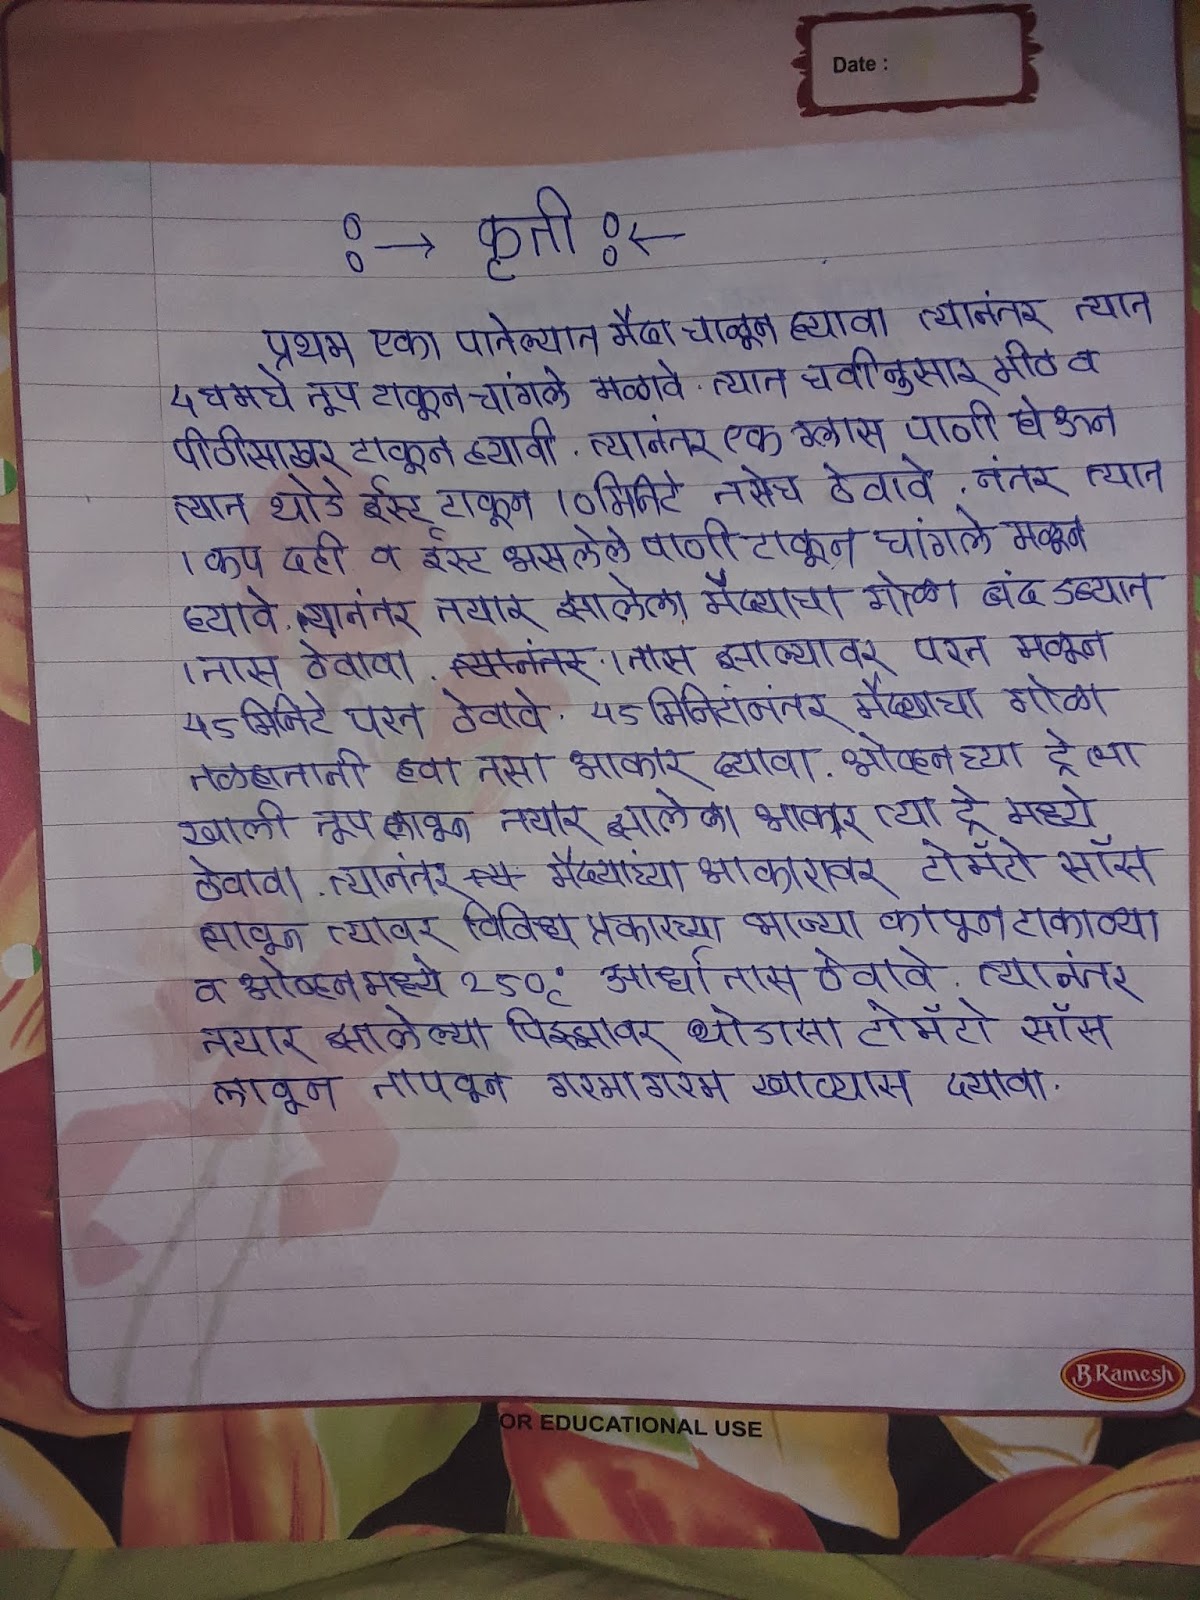 Date :
ः→ कृती ः←
प्रथम एका पातेल्यात मैदा चाळून घ्यावा त्यानंतर त्यात
4 चमचे तूप टाकून चांगले मळावे. त्यात चवीनुसार मीठ व
पीठीसाखर टाकून घ्यावी. त्यानंतर एक ग्लास पाणी घेऊन
त्यात थोडे ईस्ट टाकून 10 मिनिटे तसेच ठेवावे. नंतर त्यात
1 कप दही व ईस्ट असलेले पाणी टाकून चांगले मळून
घ्यावे. त्यानंतर तयार झालेला मैद्याचा गोळा बंद डब्यात
1 तास ठेवावा. त्यानंतर. 1 तास झाल्यावर परत मळून
45 मिनिटे परत ठेवावे. 45 मिनिटांनंतर मैद्याचा गोळा
तळहातानी हवा तसा आकार द्यावा. ओव्हनच्या ट्रे ला
खाली तूप लावून तयार झालेला आकार त्या ट्रे मध्ये
ठेवावा. त्यानंतर त्य मैद्यांच्या आकारावर टोमॅटो सॉस
लावून त्यावर विविध प्रकारच्या भाज्या कापून टाकाव्या
व ओव्हनमध्ये 250°c आर्धा तास ठेवावे. त्यानंतर
तयार झालेल्या पिझ्झावर थोडासा टोमॅटो सॉस
लावून तापवून गरमागरम खाव्यास द्यावा.
B.Ramesh
OR EDUCATIONAL USE